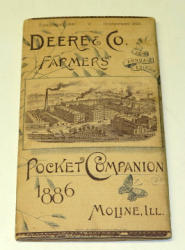 DEERE & CO.
FARMERS'
ANNUAL
POCKET COMPANION
1886
MOLINE, ILL.